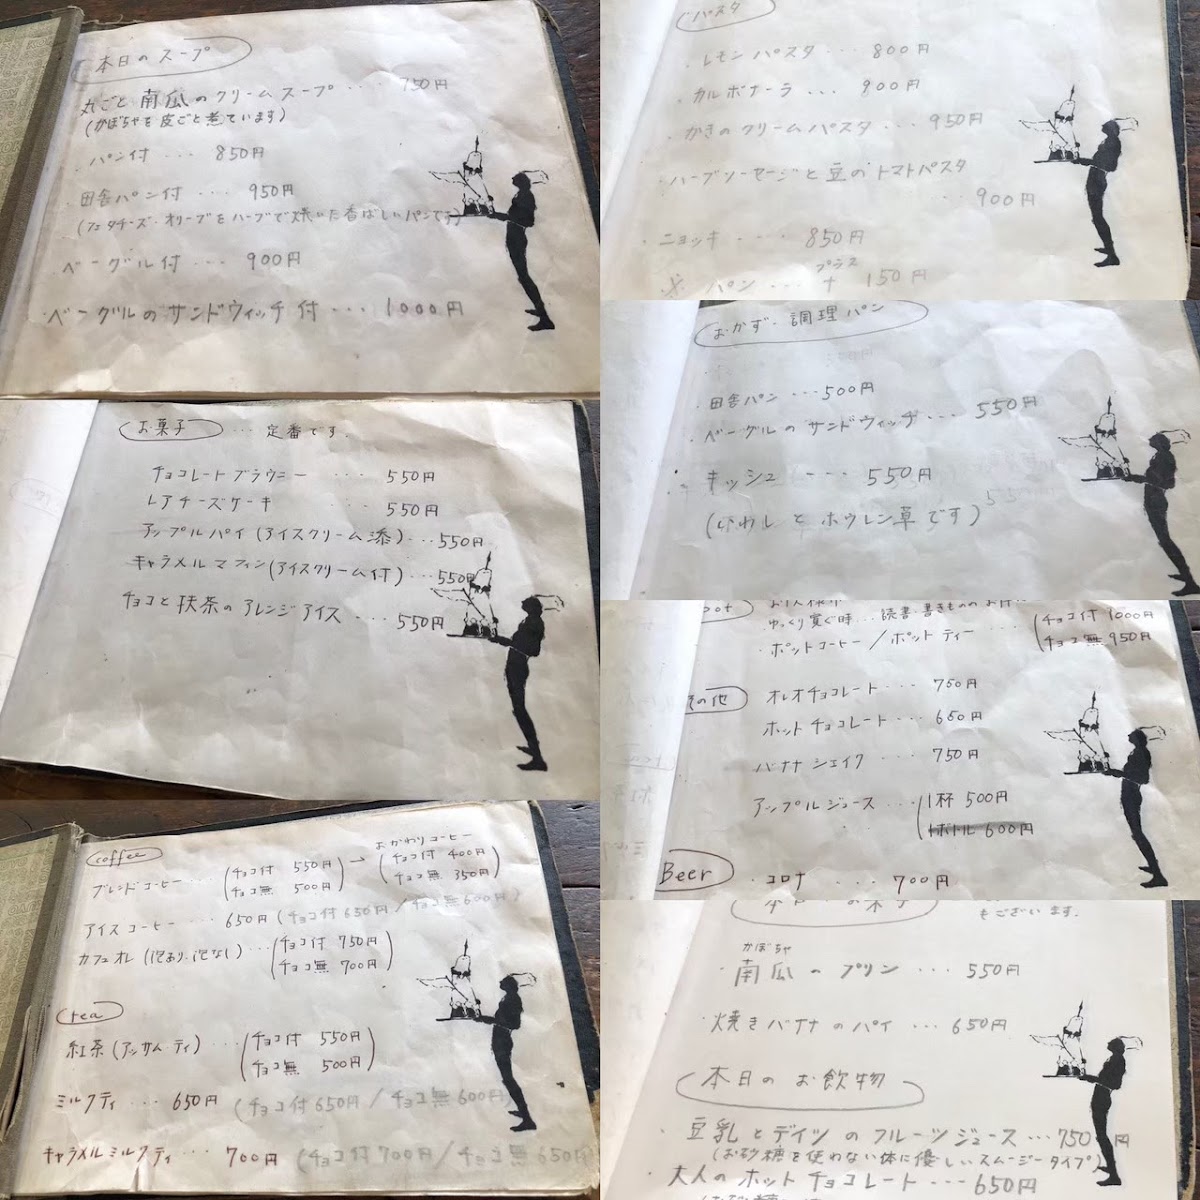 本日のスープ
丸ごと南瓜のクリームスープ・・・750円
(かぼちゃを皮ごと煮ています)
パン付・・・850円
田舎パン付・・・950円
(フェタチーズ・オリーブをハーブで焼いた香ばしいパンです)
ベーグル付・・・900円
・ベーグルのサンドウィッチ付・・・1000円
お菓子・・・定番です.
チョコレートブラウニー・・・550円
レアチーズケーキ・・・550円
アップルパイ(アイスクリーム添)・・・550円
キャラメルマフィン(アイスクリーム付)・・・550円
チョコと抹茶のアレンジアイス・・・550円
coffee
おかわりコーヒー
ブレンドコーヒー・・・(チョコ付 550円→(チョコ付 400円
チョコ無 500円)チョコ無 350円)
アイスコーヒー・・・650円(チョコ付650円/チョコ無600円)
カフェオレ(泡あり・泡なし)・・・(チョコ付 750円
チョコ無 700円)
tea
紅茶(アッサムティ)・・・(チョコ付 550円
チョコ無 500円)
ミルクティ・・・650円(チョコ付650円/チョコ無600円)
キャラメルミルクティ・・・700円(チョコ付700円/チョコ無650円
パスタ
・レモンパスタ・・・800円
・カルボナーラ・・・900円
・かきのクリームパスタ・・・950円
・ハーブソーセージと豆のトマトパスタ
・・900円
・ニョッキ・・・850円
プラス
※パン・・・+150円
おかず・調理パン
・田舎パン・・・500円
・ベーグルのサンドウィッチ・・・550円
・キッシュ・・・550円
(いわしとホウレン草です)
ゆっくり寛ぐ時・・・読書・書きもののお供に
・ポットコーヒー/ポットティー・・・(チョコ付1000円
チョコ無950円
その他
オレオチョコレート・・・750円
ホットチョコレート・・・650円
バナナシェイク・・・750円
アップルジュース・・・(1杯 500円
1ボトル 600円
Beer
・コロナ・・・700円
もございます.
かぼちゃ
・南瓜のプリン・・・550円
・焼きバナナのパイ・・・650円
本日のお飲物
・豆乳とデイツのフルーツジュース・・・750円
(お砂糖を使わない体に優しいスムージータイプ)
・大人のホットチョコレート・・・650円